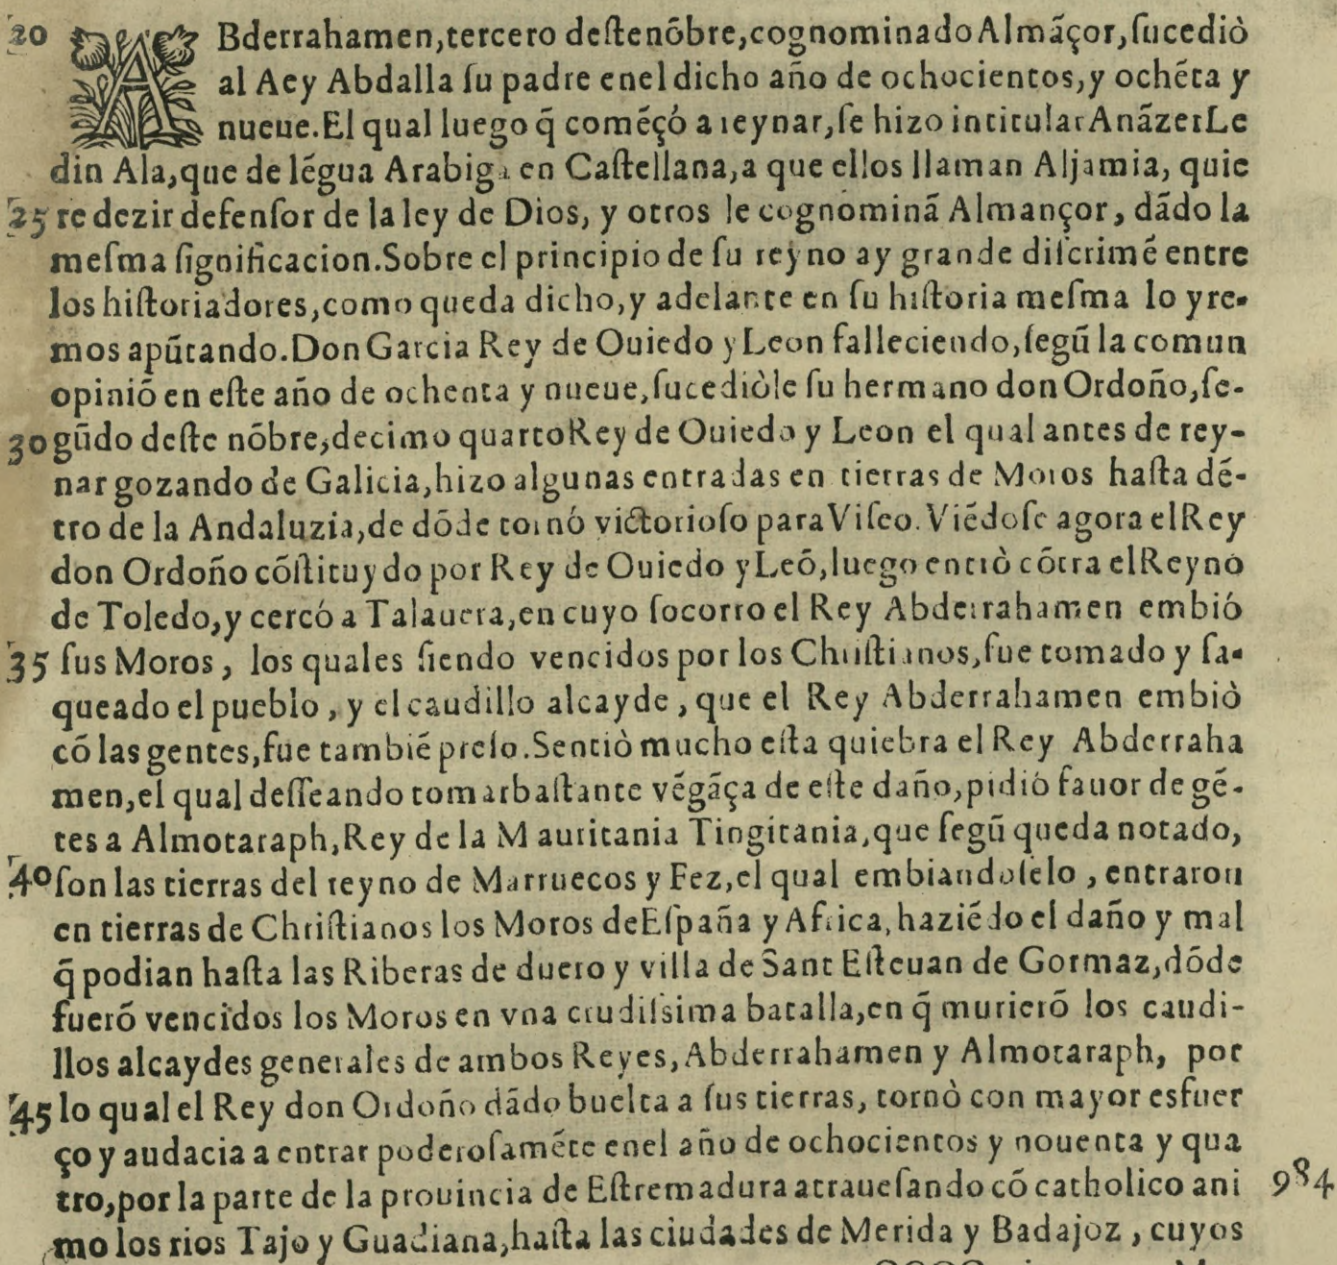 20 ABderrahamen,tercero deſtenõbre,cognominado Almãçor,ſucediò
al Aey Abdalla ſu padre enel dicho año de ochocientos,y ochẽta y
nueue.El qual luego q̃ comẽçó a reynar,ſe hizo intitular AnãzerLe
din Ala,que de lẽgua Arabiga en Caſtellana,a que ellos llaman Aljamia, quie
25 re dezir defenſor de la ley de Dios, y otros le cognominã Almançor, dãdo la
meſma ſignificacion.Sobre el principio de ſu reyno ay grande diſcrimẽ entre
los hiſtoriadores,como queda dicho,y adelante en ſu hiſtoria meſma lo yre-
mos apũtando.Don Garcia Rey de Ouiedo y Leon falleciendo,ſegũ la comun
opiniõ en eſte año de ochenta y nueue,ſucediòle ſu hermano don Ordoño,ſe-
30 gũdo deſte nõbre,decimo quarto Rey de Ouiedo y Leon el qual antes de rey-
nar gozando de Galicia,hizo algunas entradas en tierras de Moros haſta dẽ-
tro de la Andaluzia,de dõde tornó victorioſo para Viſeo. Viẽdoſe agora el Rey
don Ordoño cõſtituydo por Rey de Ouiedo y Leõ,luego entrò cõtra el Reyno
de Toledo,y cercó a Talauera,en cuyo ſocorro el Rey Abderrahamen embió
35 ſus Moros, los quales ſiendo vencidos por los Chriſtianos,fue tomado y ſa-
queado el pueblo, y el caudillo alcayde, que el Rey Abderrahamen embiò
cõ las gentes,fue tambiẽ preſo.Sentiò mucho eſta quiebra el Rey Abderraha
men,el qual deſſeando tomar baſtante vẽgãça de eſte daño,pidiò fauor de gẽ-
tes a Almotaraph,Rey de la Mauritania Tingitania,que ſegũ queda notado,
40 ſon las tierras del reyno de Marruecos y Fez,el qual embiandoſelo, entraron
en tierras de Chriſtianos los Moros de Eſpaña y Africa,haziẽdo el daño y mal
q̃ podian haſta las Riberas de duero y villa de Sant Eſteuan de Gormaz,dõde
fuerõ vencidos los Moros en vna crudiſsima batalla,en q̃ murierõ los caudi-
llos alcaydes generales de ambos Reyes,Abderrahamen y Almotaraph, por
45 lo qual el Rey don Ordoño dãdo buelta a ſus tierras, tornò con mayor esfuer
ço y audacia a entrar poderoſamẽte enel año de ochocientos y nouenta y qua
tro,por la parte de la prouincia de Eſtremadura atraueſando cõ catholico ani 984
mo los rios Tajo y Guadiana,haſta las ciudades de Merida y Badajoz, cuyos